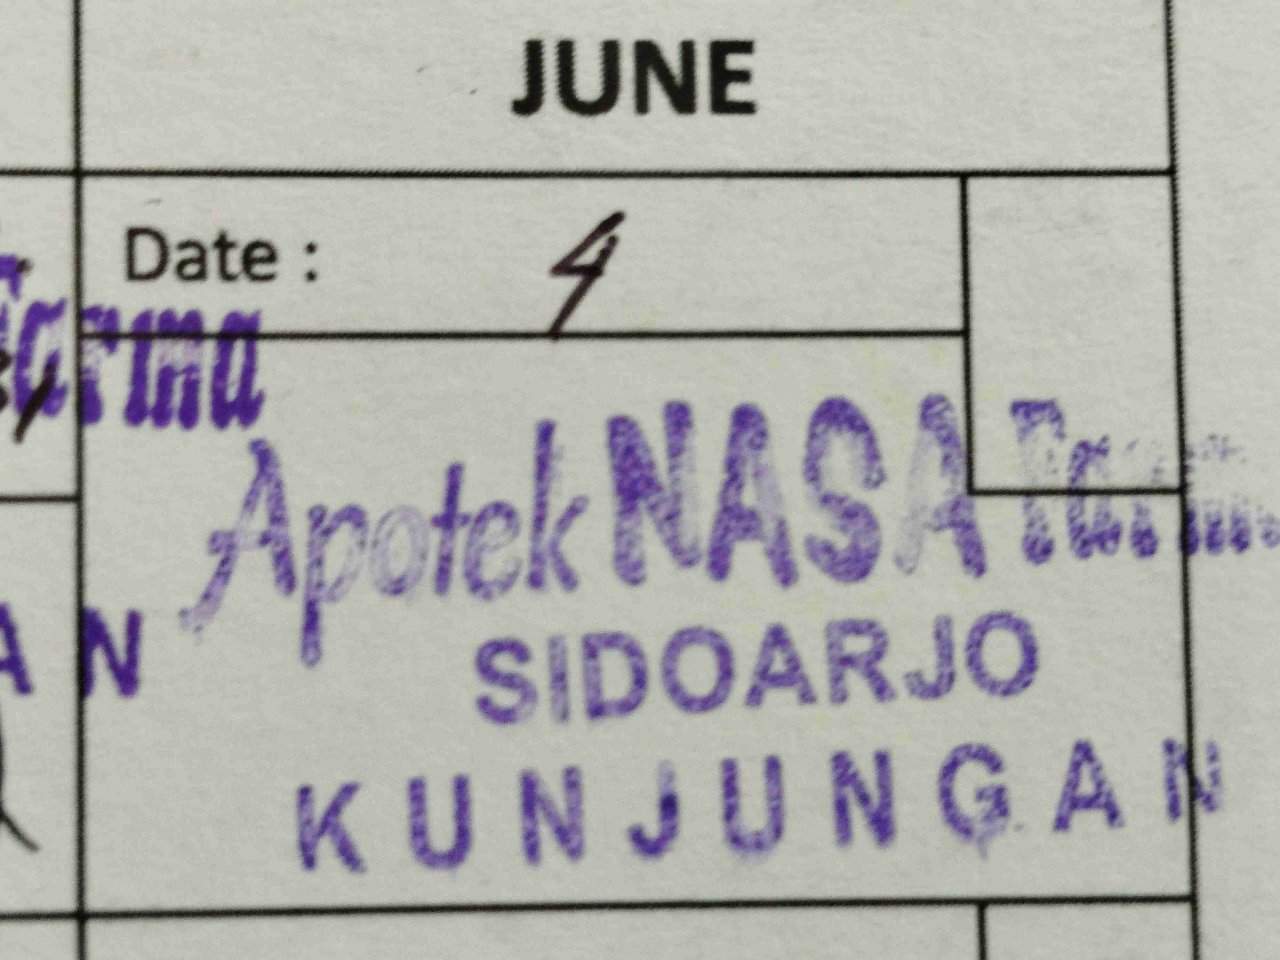 JUNE
Date : 4
Farma
Apotek NASA Farm
SIDOARJO
AN
KUNJUNGAN